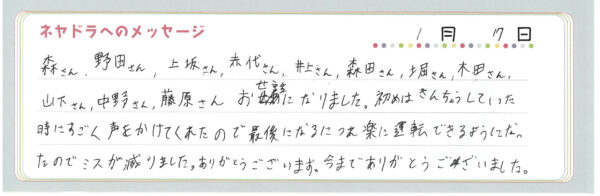 ネヤドラへのメッセージ 1月 17日
森さん、野田さん、上坂さん、赤代さん、井上さん、森田さん、堀さん、木田さん、
山下さん、中野さん、藤原さん お世話になりました。初めはきんちょうしていた
時にすごく声をかけてくれたので最後になるにつれ楽に運転できるようになっ
たのでミスが減りました。ありがとうございます。今までありがとうございました。